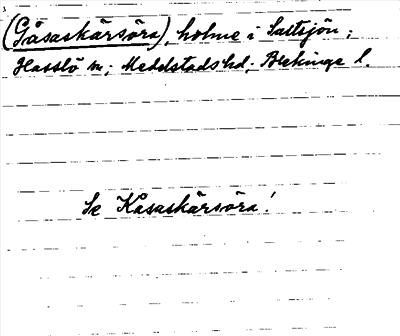 (Gåsaskärsöra), holme i Saltsjön;
Hasslö sn; Medelstads hd; Blekinge l.
Se Kåsaskärsöra!